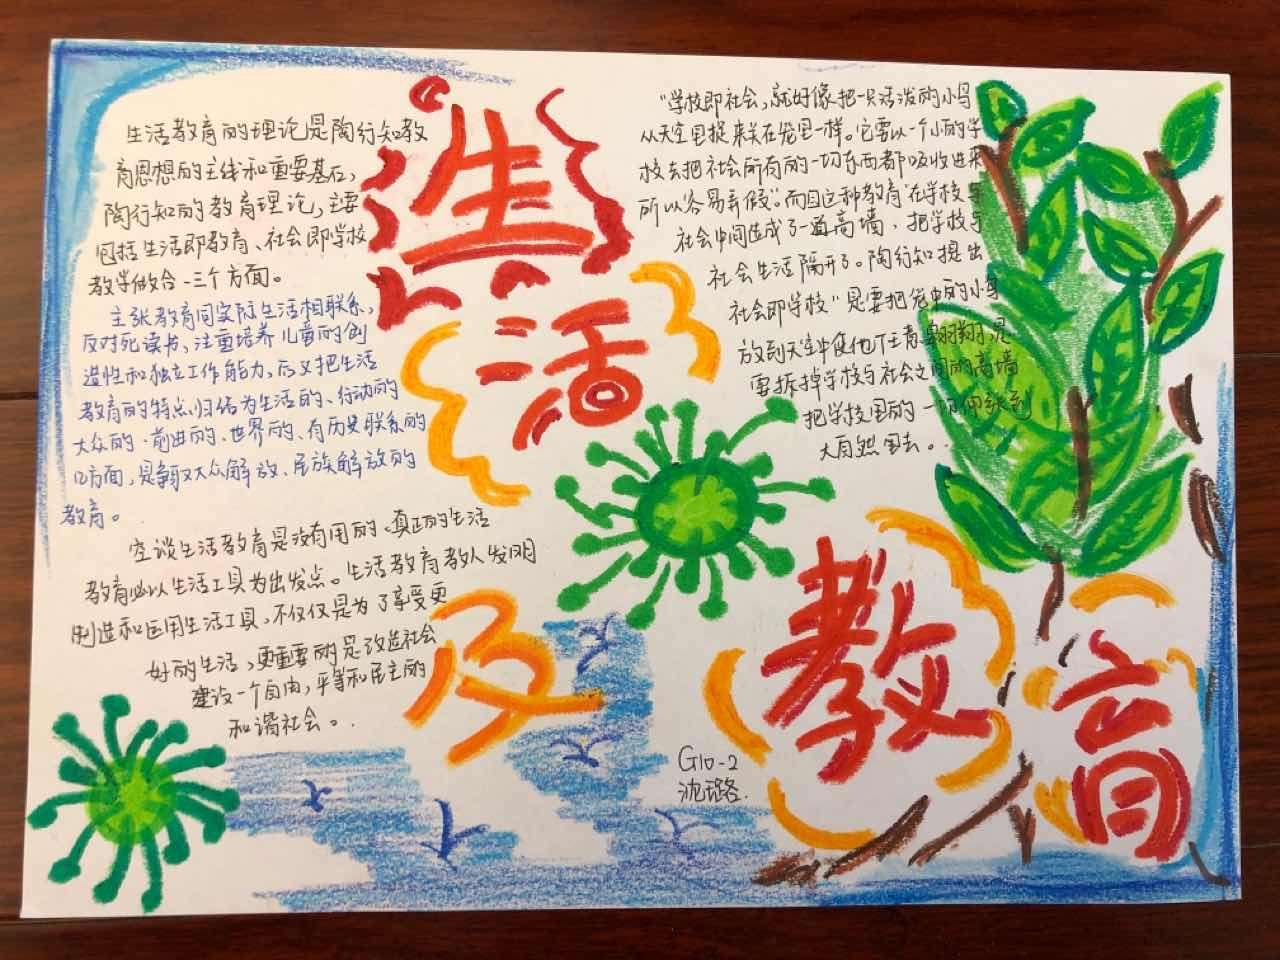 生活及教育
生活教育的理论是陶行知教
育思想的主线和重要基石,
陶行知的教育理论,主要
包括生活即教育、社会即学校
教学做合一三个方面。
主张教育同实际生活相联系,
反对死读书,注重培养儿童的创
造性和独立工作能力,后又把生活
教育的特点归结为生活的、行动的
大众的、前进的、世界的、有历史联系的
几方面,是争取大众解放、民族解放的
教育。
空谈生活教育是没有用的。真正的生活
教育必以生活工具为出发点。生活教育教人发明
制造和运用生活工具,不仅仅是为了享受更
好的生活,更重要的是改造社会
建设一个自由,平等和民主的
和谐社会。
“学校即社会,就好像把一只活泼的小鸟
从天空里捉来关在笼里一样。它要以一个小的学
校去把社会所有的一切东西都吸收进来
所以容易弄假。”而且这种教育在学校与
社会中间造成了一道高墙,把学校与
社会生活隔开了。陶行知提出
社会即学校”是要把笼中的小鸟
放到天空中使他任意翱翔,是
要拆掉学校与社会之间的高墙
把学校里的一切伸张到
大自然里去。
G10-2
沈璐